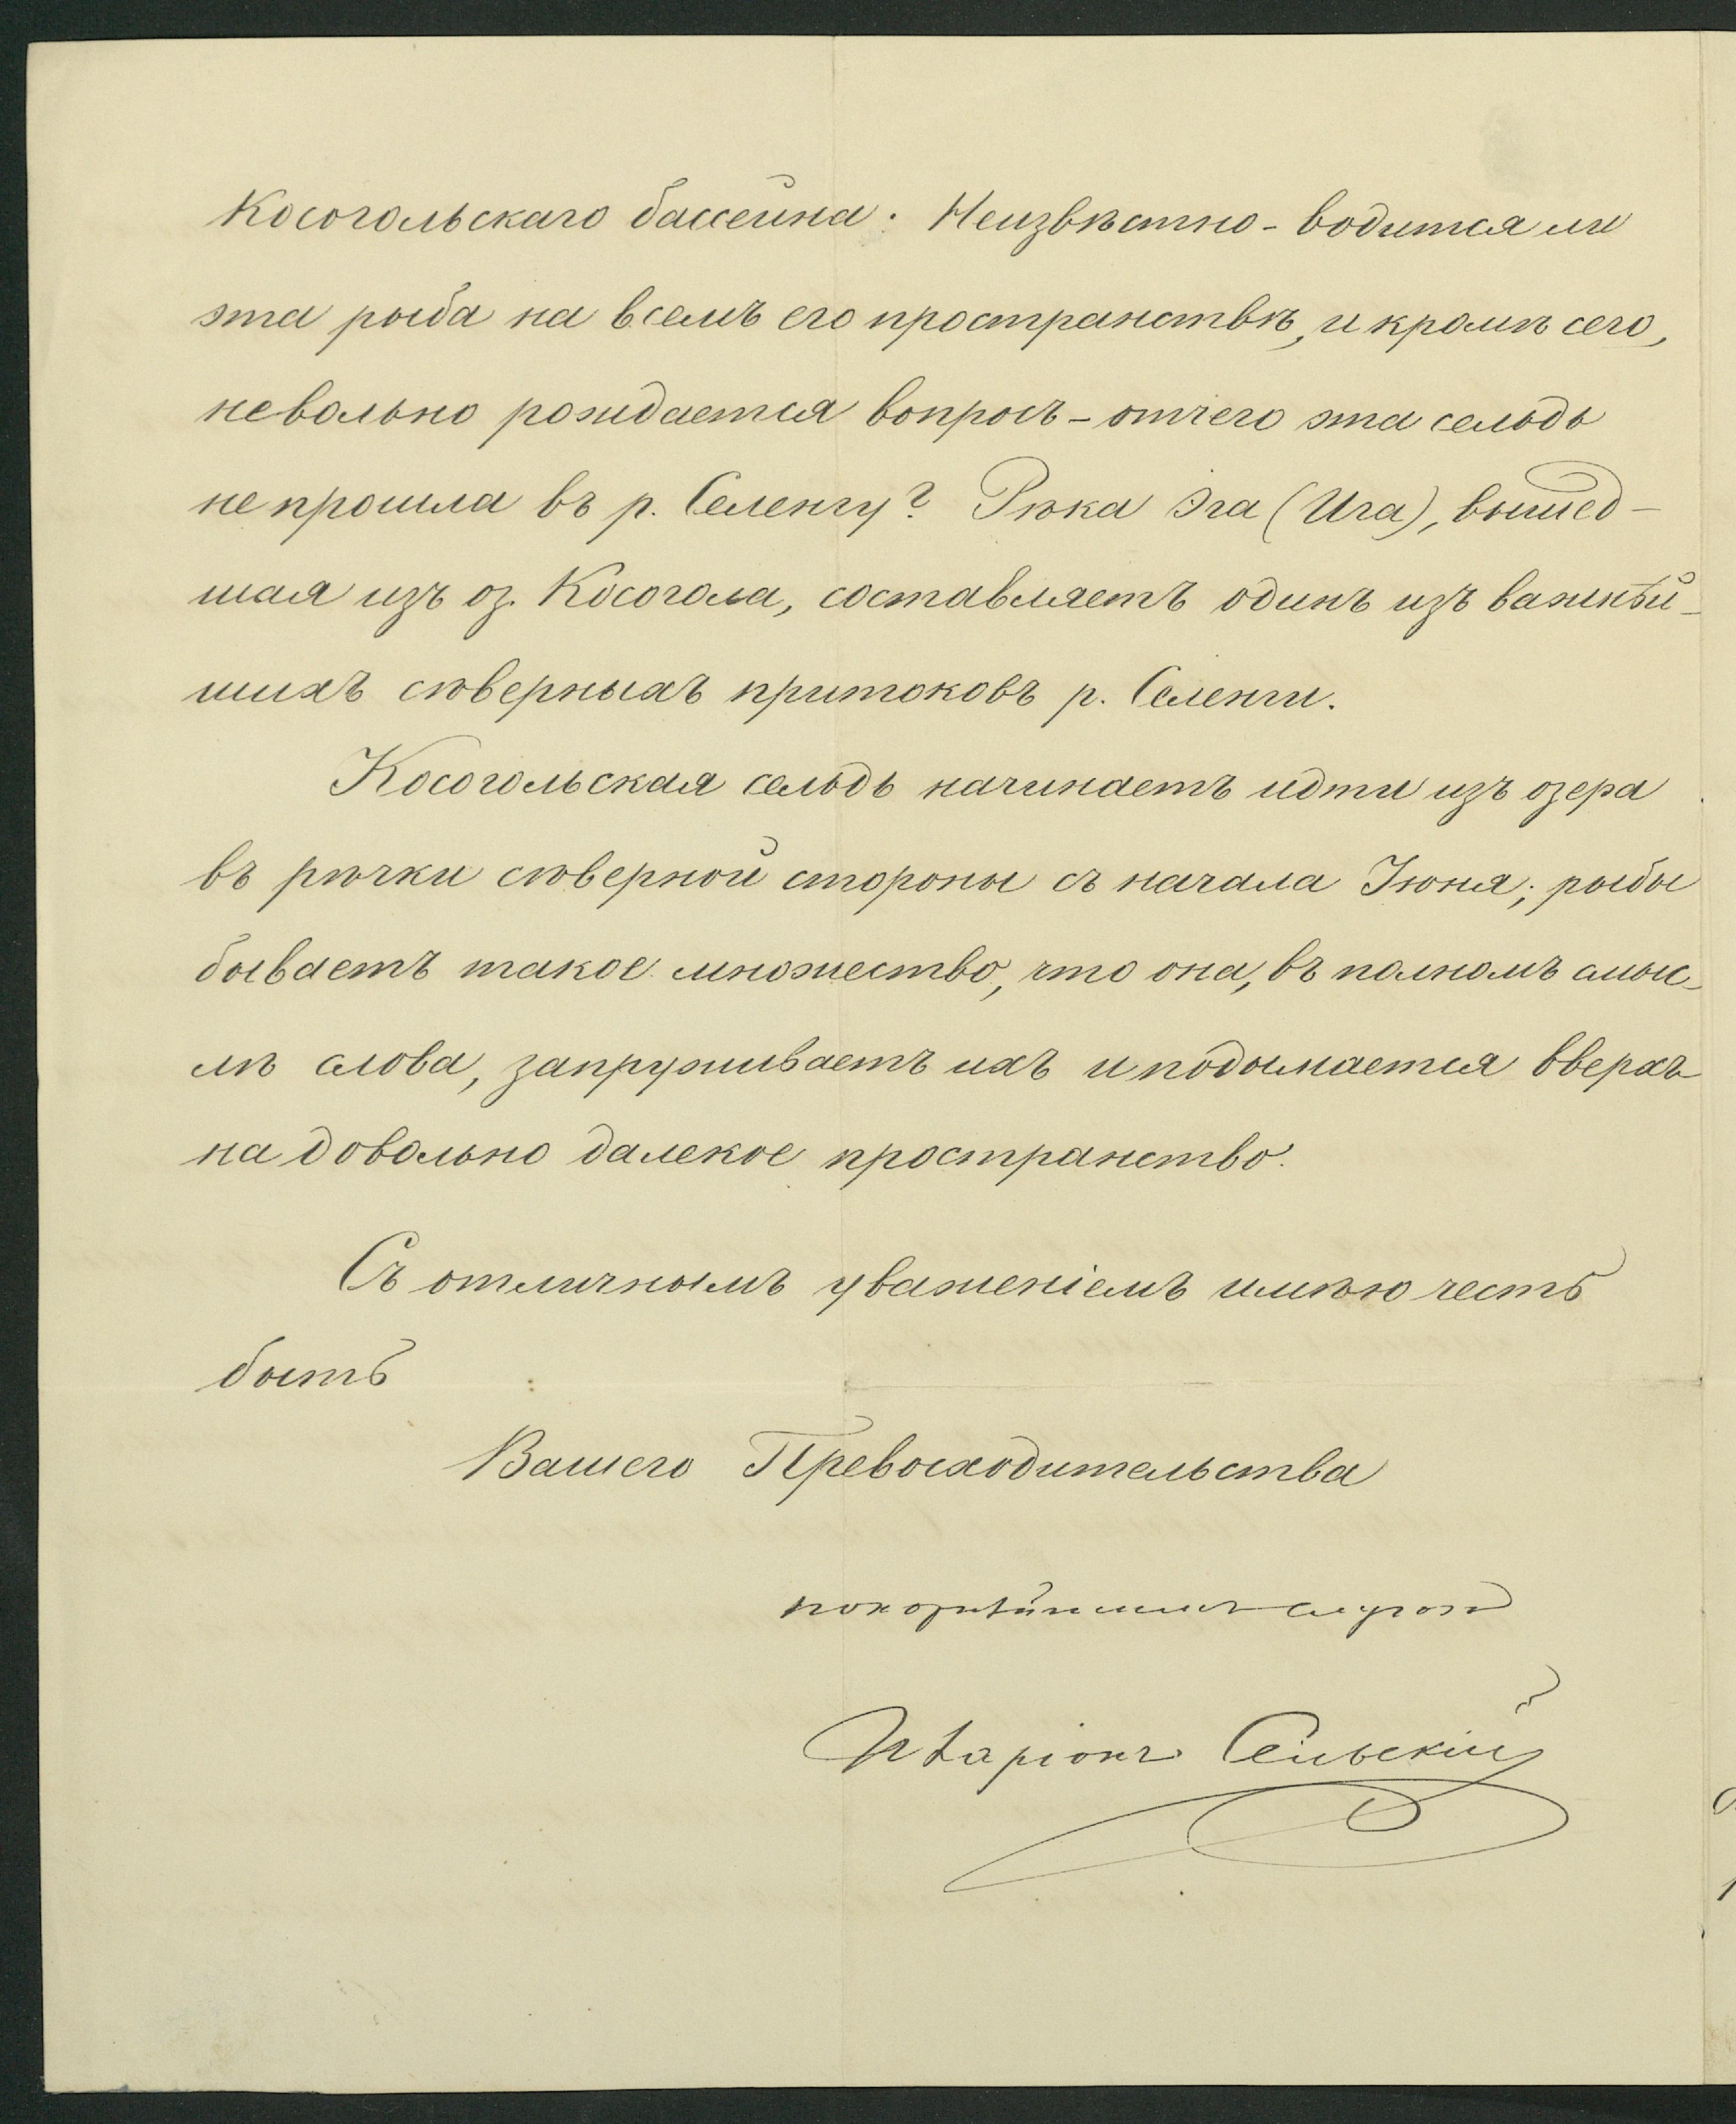 Косогольскаго бассейна. Неизвѣстно - водится ли
эта рыба на всемъ его пространствѣ, и кромѣ сего,
невольно рождается вопросъ - отчего эта сельдь
не прошла въ р. Селенгу? Рѣка Эга (Ига), вышед-
шая изъ оз. Косогола, составляетъ одинъ изъ важнѣй-
шихъ сѣверныхъ притоковъ р. Селенги.
Косогольская сельдь начинаетъ идти изъ озера
въ рѣчки сѣверной стороны съ начала Іюня; рыбы
бываетъ такое множество, что она, въ полномъ смыс-
лѣ слова, запруживаетъ ихъ и подымается вверхъ
на довольно далекое пространство.
Съ отличнымъ уваженіемъ имѣю честь
быть
Вашего Превосходительства
покорнѣйшимъ слугою
Иларіонъ Сельскій